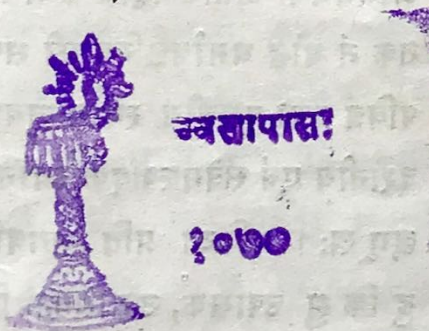 च्वसापासा
१०७०